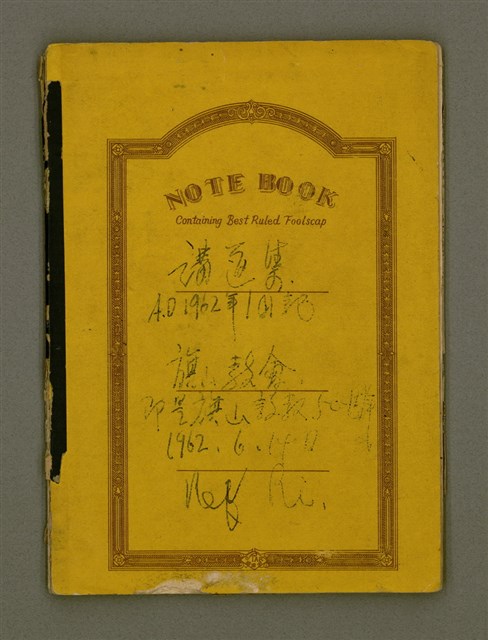 NOTE BOOK
Containing Best Ruled Foolscap
講道集.
A.D 1962年1月
旗山教會.
即是旗山設教50
1962.6.14